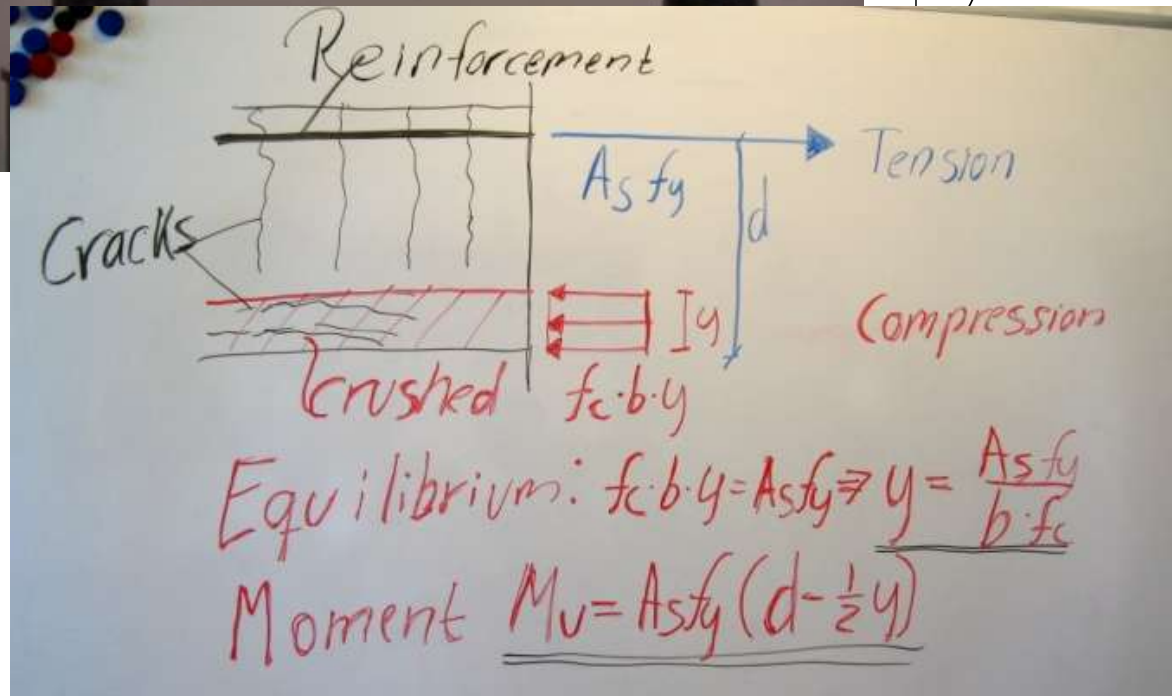 Reinforcement
As fy
d
Tension
Cracks
y
Compression
crushed
fc·b·y
Equilibrium: fc·b·y = As fy ⇒ y = As fy / b·fc
Moment Mu = As fy (d - 1/2 y)